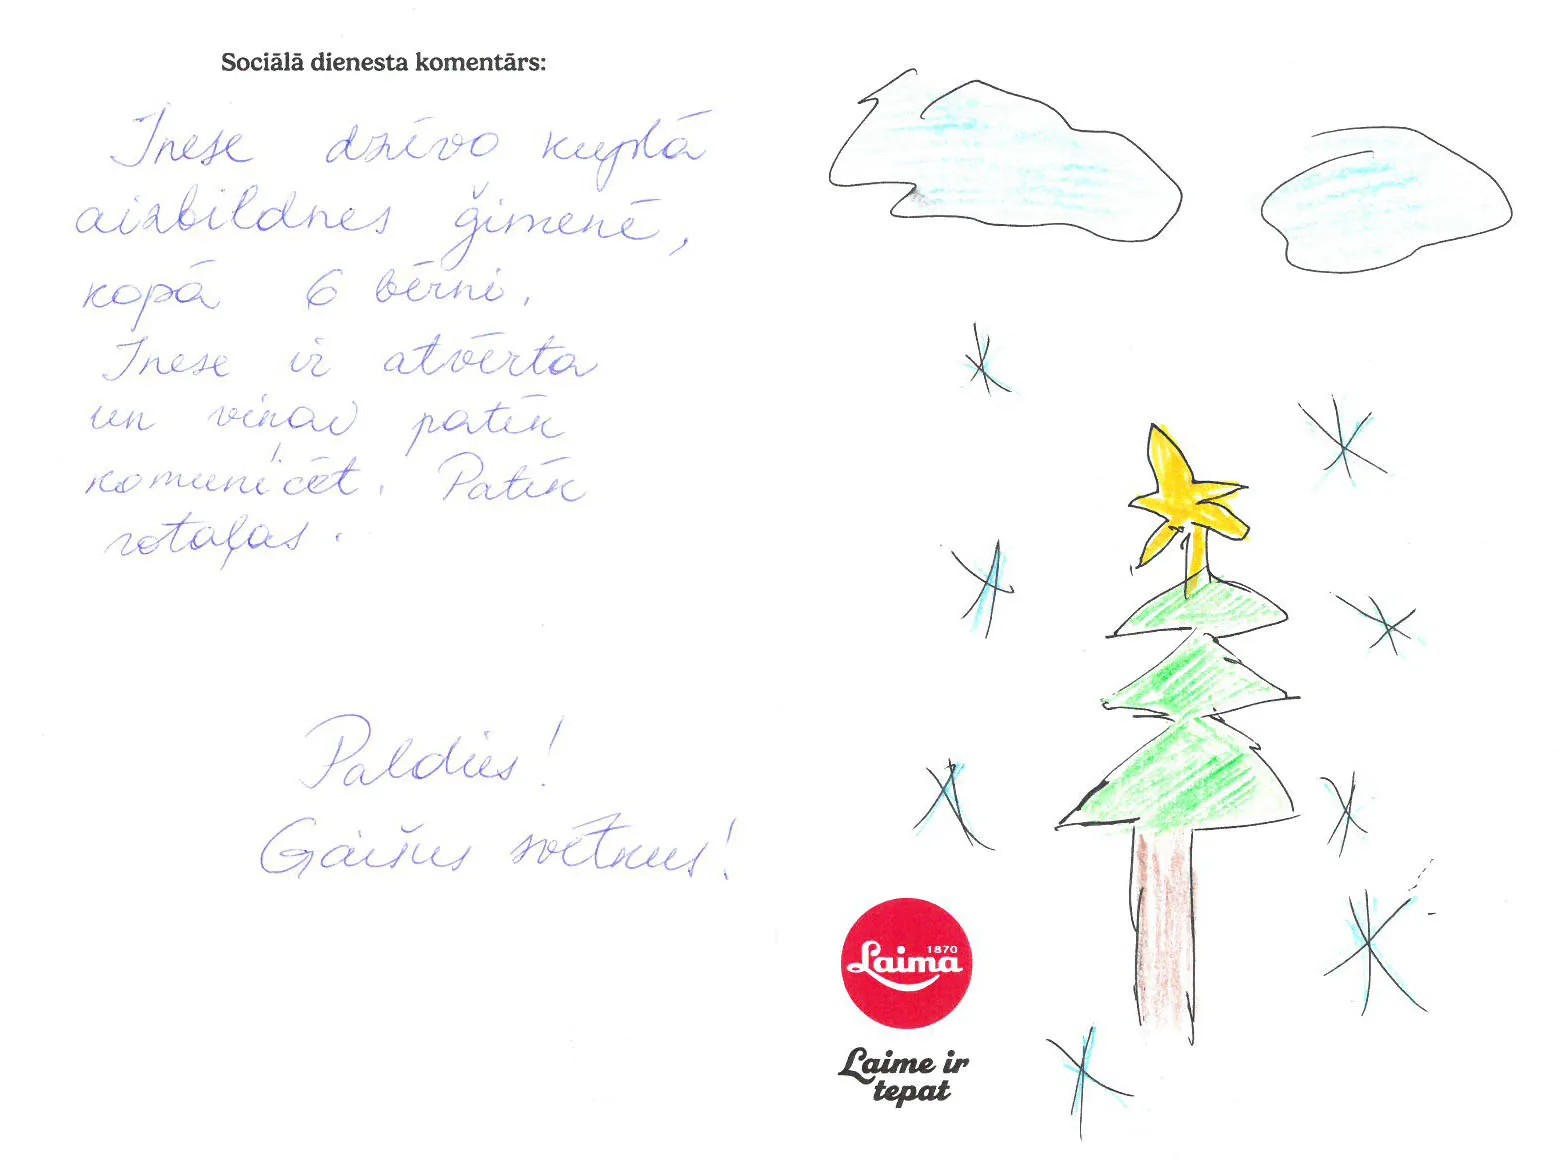 Sociālā dienesta komentārs:
Inese dzīvo kuplā
aizbildnes ģimenē,
kopā 6 bērni.
Inese ir atvērta
un viņai patīk
komuņicēt. Patīk
rotaļas.
Paldies!
Gaišus svētkus!
1870
Laima
Laime ir
tepat